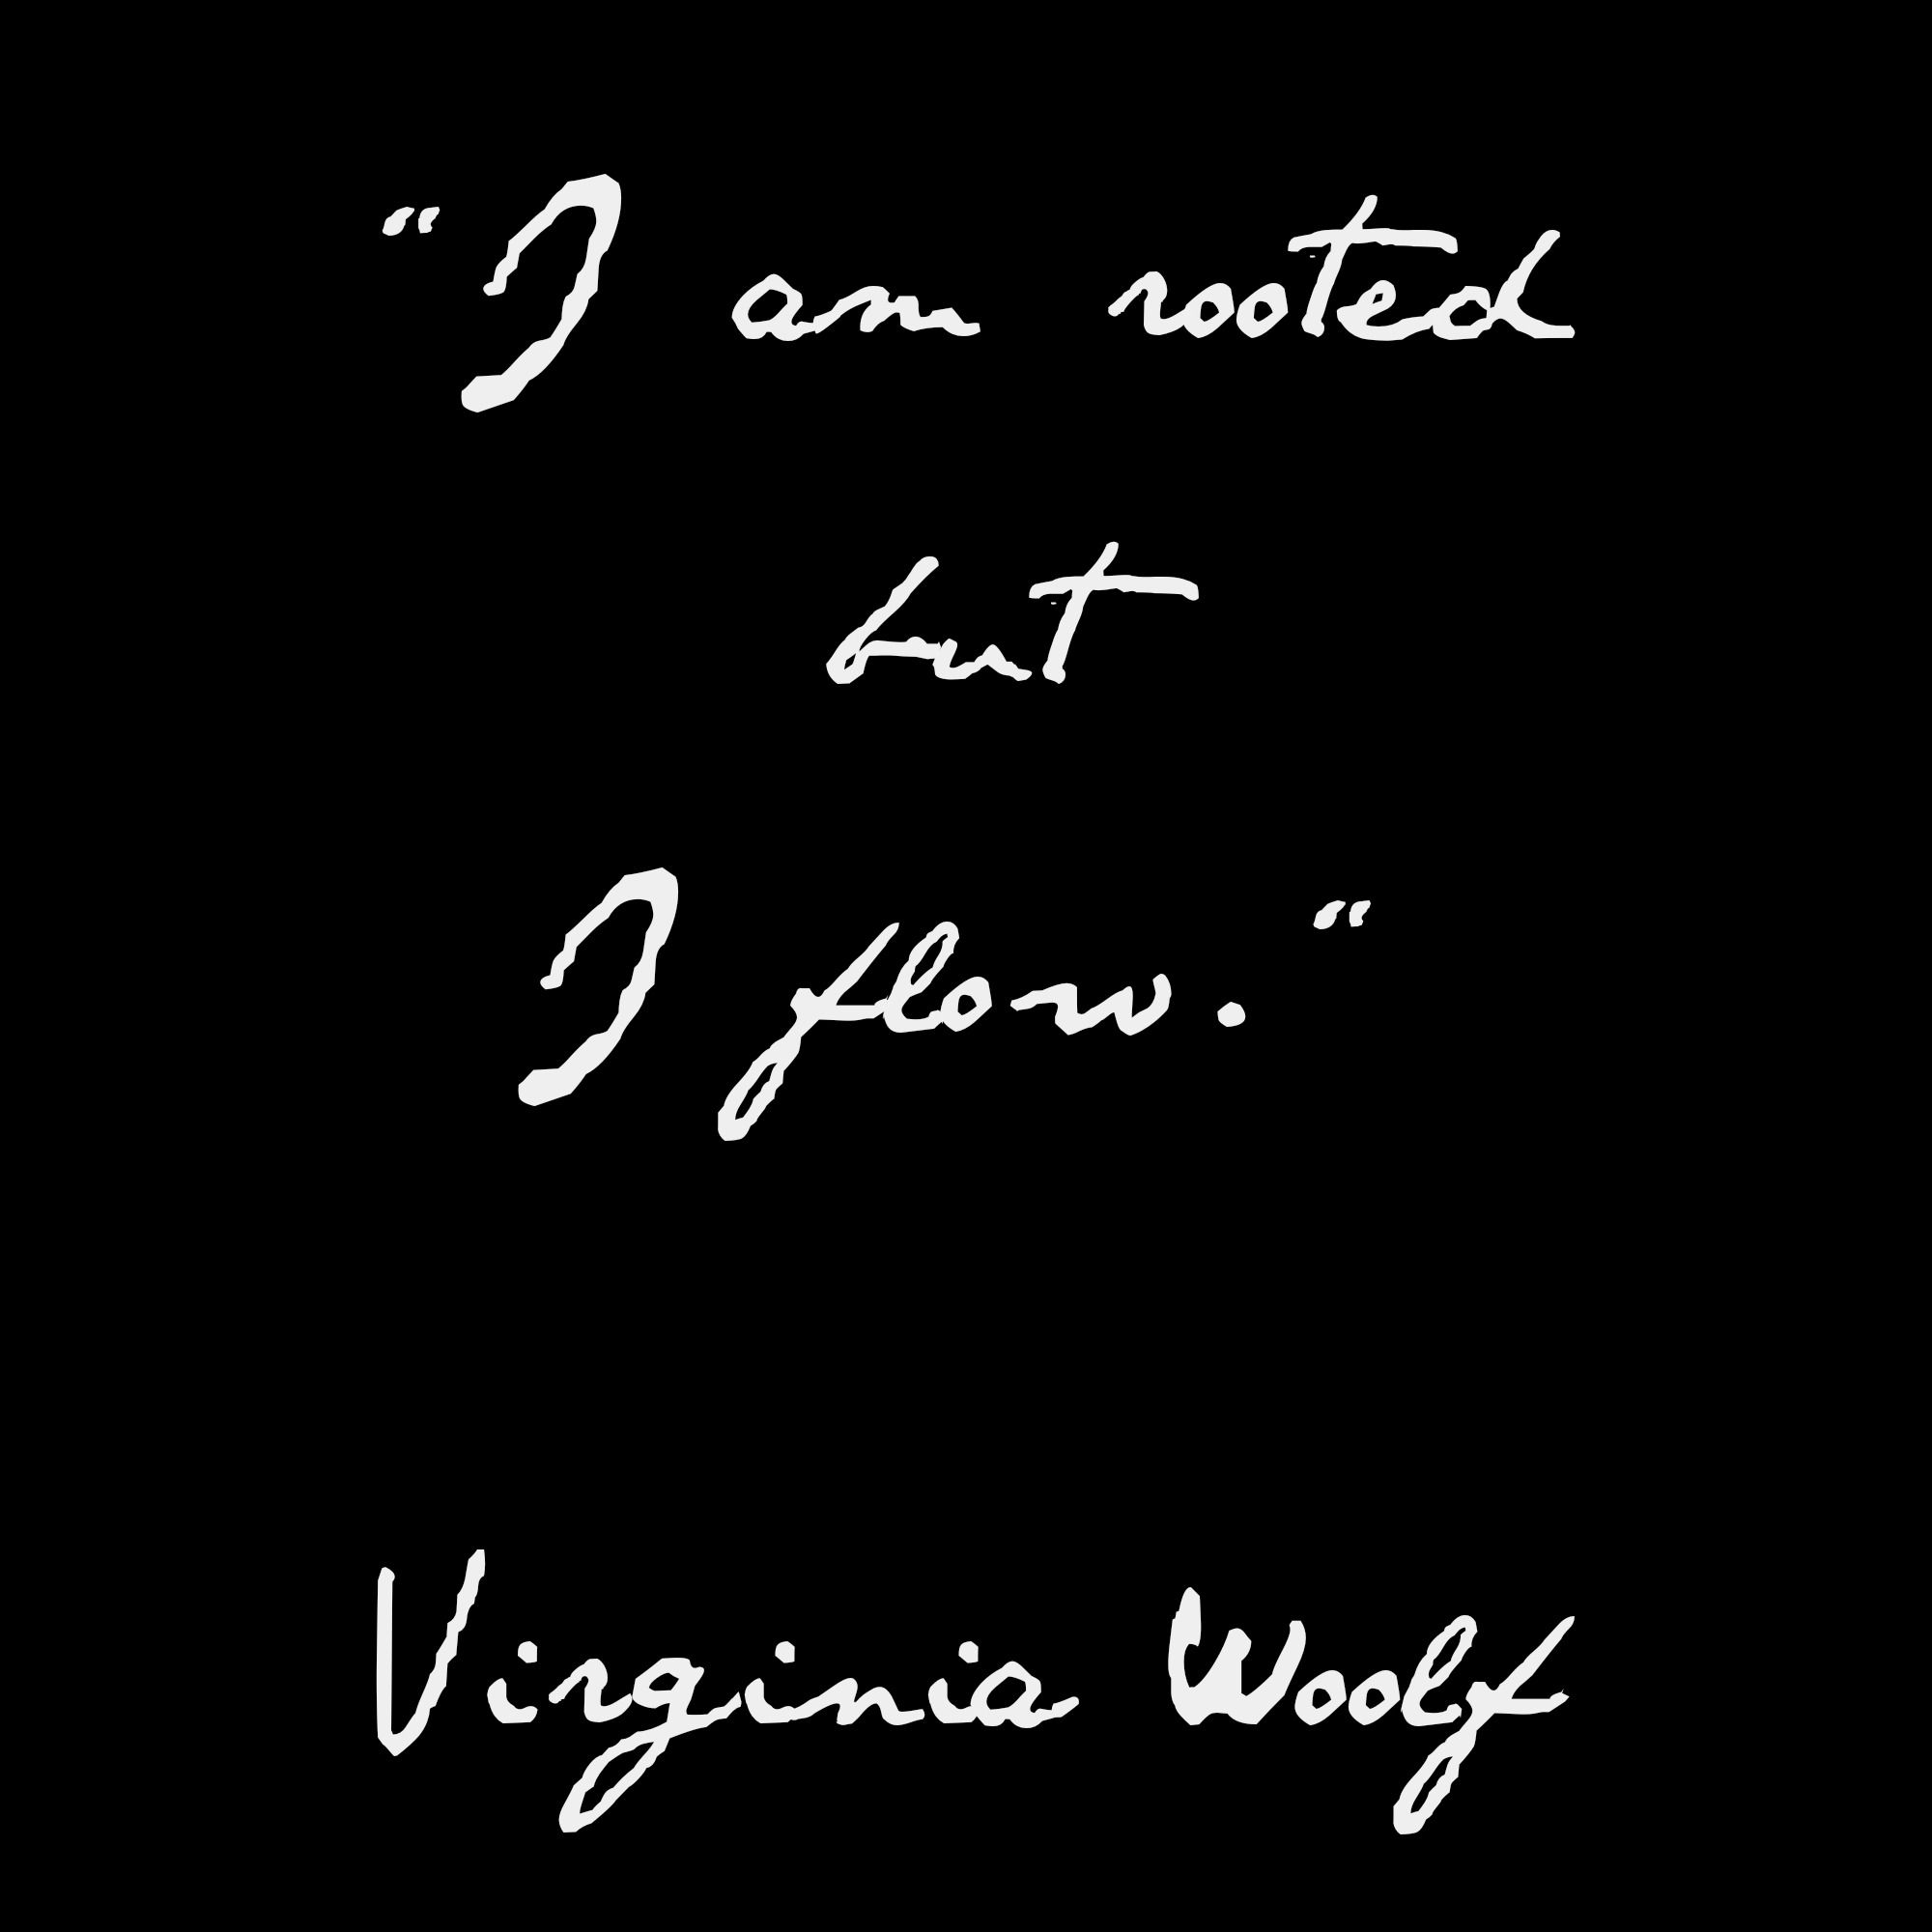 "I am rooted
but
I flow."
Virginia Woolf